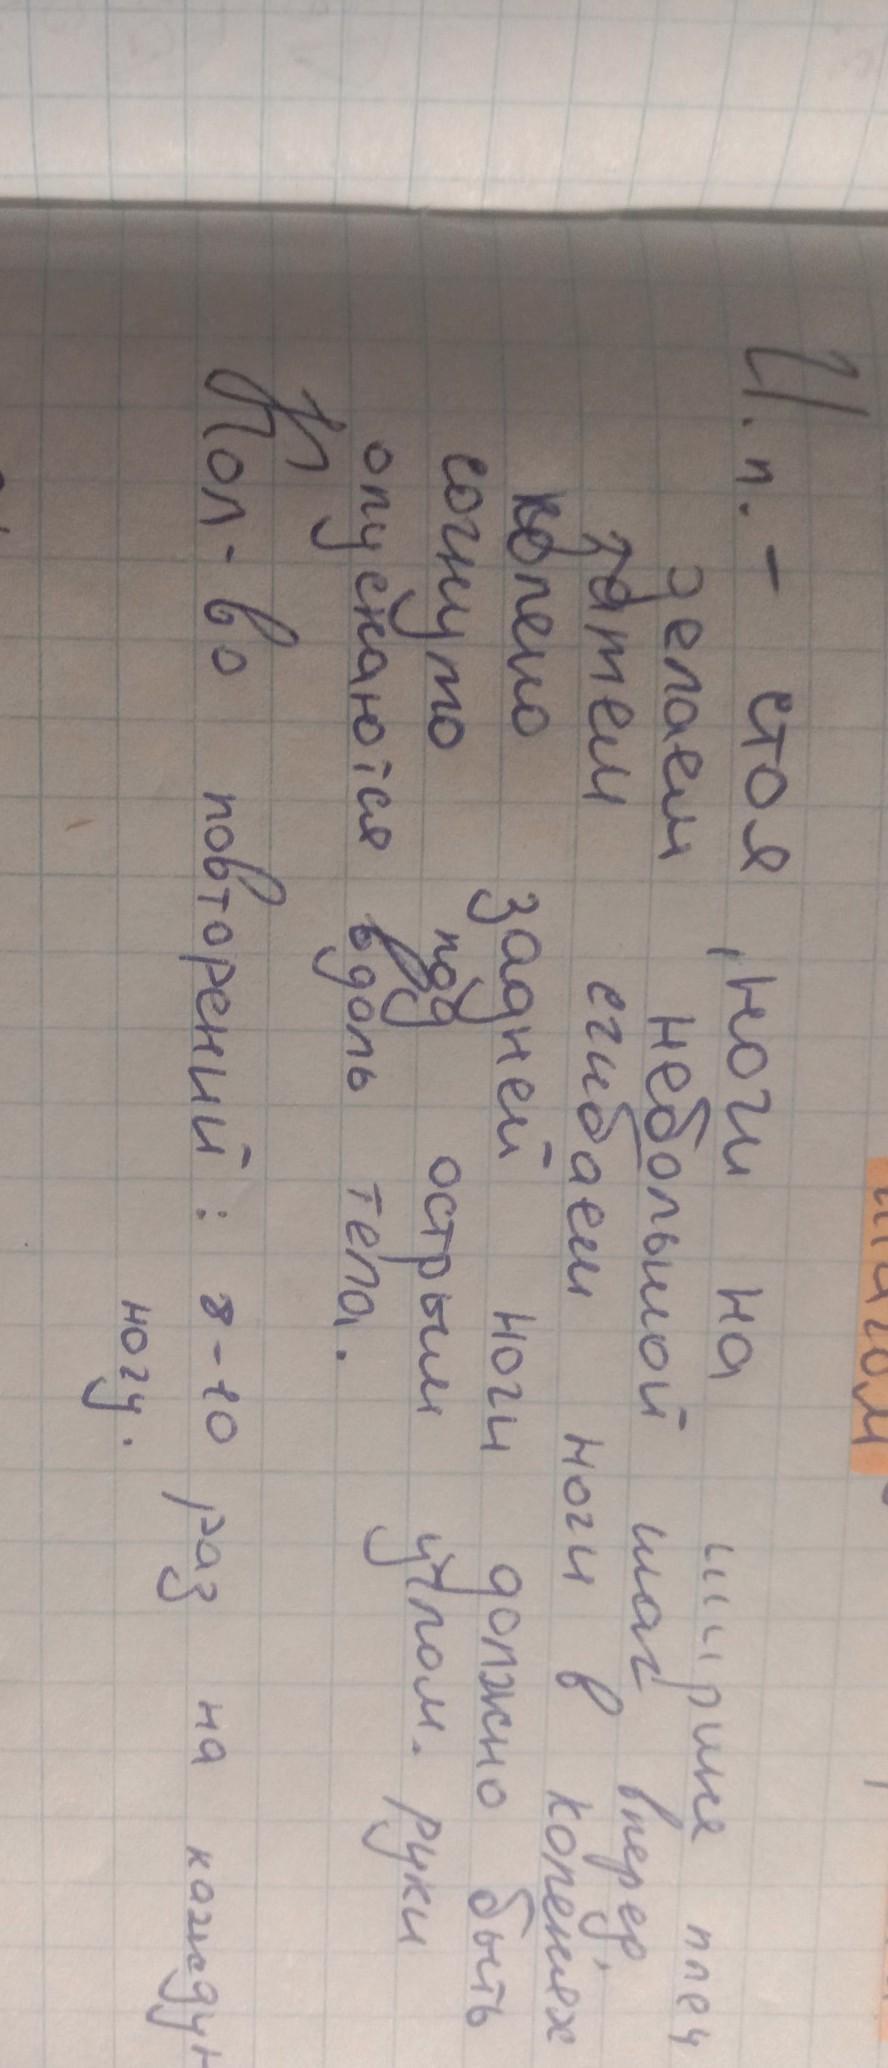 шагом
И.п. - стоя, ноги на ширине плеч
делаем небольшой шаг вперед,
затем сгибаем ноги в коленях
колено задней ноги должно быть
согнуто под острым углом. руки
опускаются вдоль тела.
Кол-во повторений: 8-10 раз на
ногу.